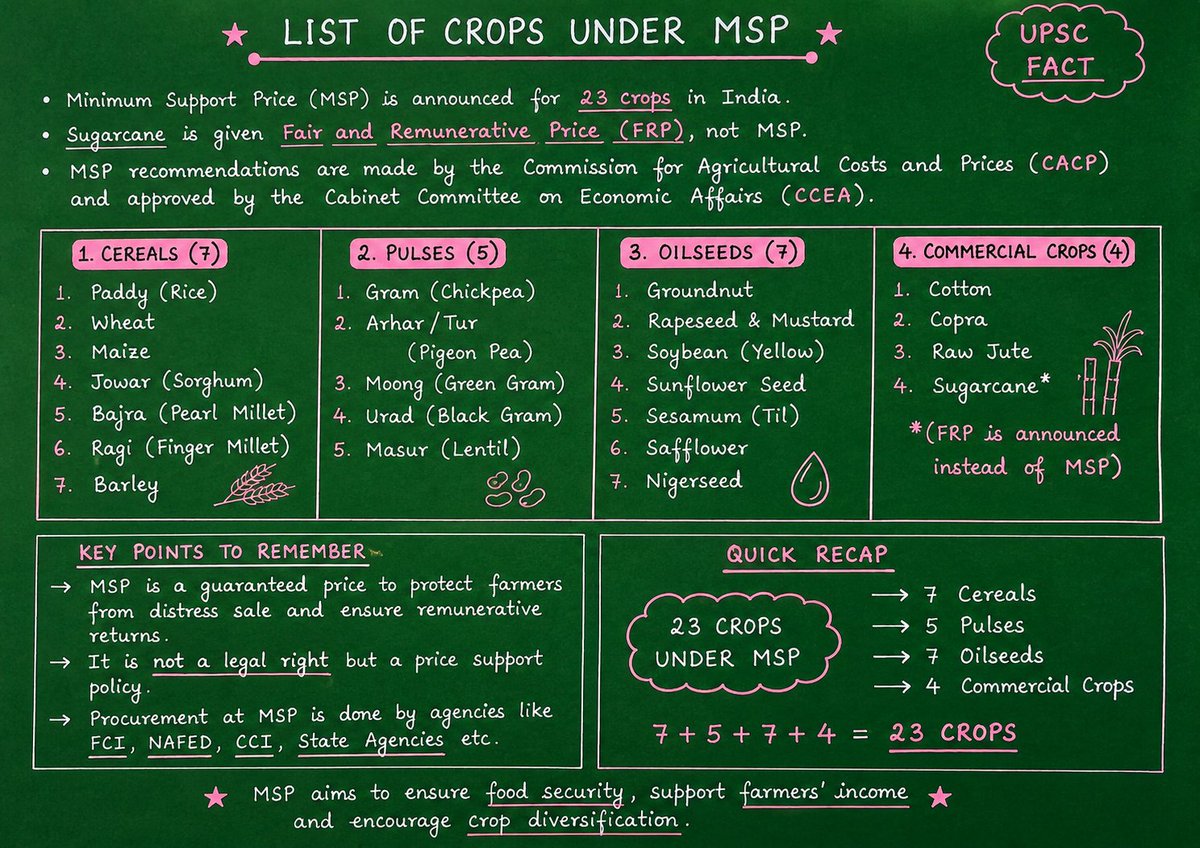 LIST OF CROPS UNDER MSP
UPSC
FACT
• Minimum Support Price (MSP) is announced for 23 crops in India.
• Sugarcane is given Fair and Remunerative Price (FRP), not MSP.
• MSP recommendations are made by the Commission for Agricultural Costs and Prices (CACP)
and approved by the Cabinet Committee on Economic Affairs (CCEA).
1. CEREALS (7)
1. Paddy (Rice)
2. Wheat
3. Maize
4. Jowar (Sorghum)
5. Bajra (Pearl Millet)
6. Ragi (Finger Millet)
7. Barley
2. PULSES (5)
1. Gram (Chickpea)
2. Arhar/Tur
(Pigeon Pea)
3. Moong (Green Gram)
4. Urad (Black Gram)
5. Masur (Lentil)
3. OILSEEDS (7)
1. Groundnut
2. Rapeseed & Mustard
3. Soybean (Yellow)
4. Sunflower Seed
5. Sesamum (Til)
6. Safflower
7. Nigerseed
4. COMMERCIAL CROPS (4)
1. Cotton
2. Copra
3. Raw Jute
4. Sugarcane*
*(FRP is announced
instead of MSP)
KEY POINTS TO REMEMBER
→ MSP is a guaranteed price to protect farmers
from distress sale and ensure remunerative
returns.
→ It is not a legal right but a price support
policy.
→ Procurement at MSP is done by agencies like
FCI, NAFED, CCI, State Agencies etc.
QUICK RECAP
23 CROPS
UNDER MSP
→ 7 Cereals
→ 5 Pulses
→ 7 Oilseeds
→ 4 Commercial Crops
7 + 5 + 7 + 4 = 23 CROPS
MSP aims to ensure food security, support farmers' income
and encourage crop diversification.